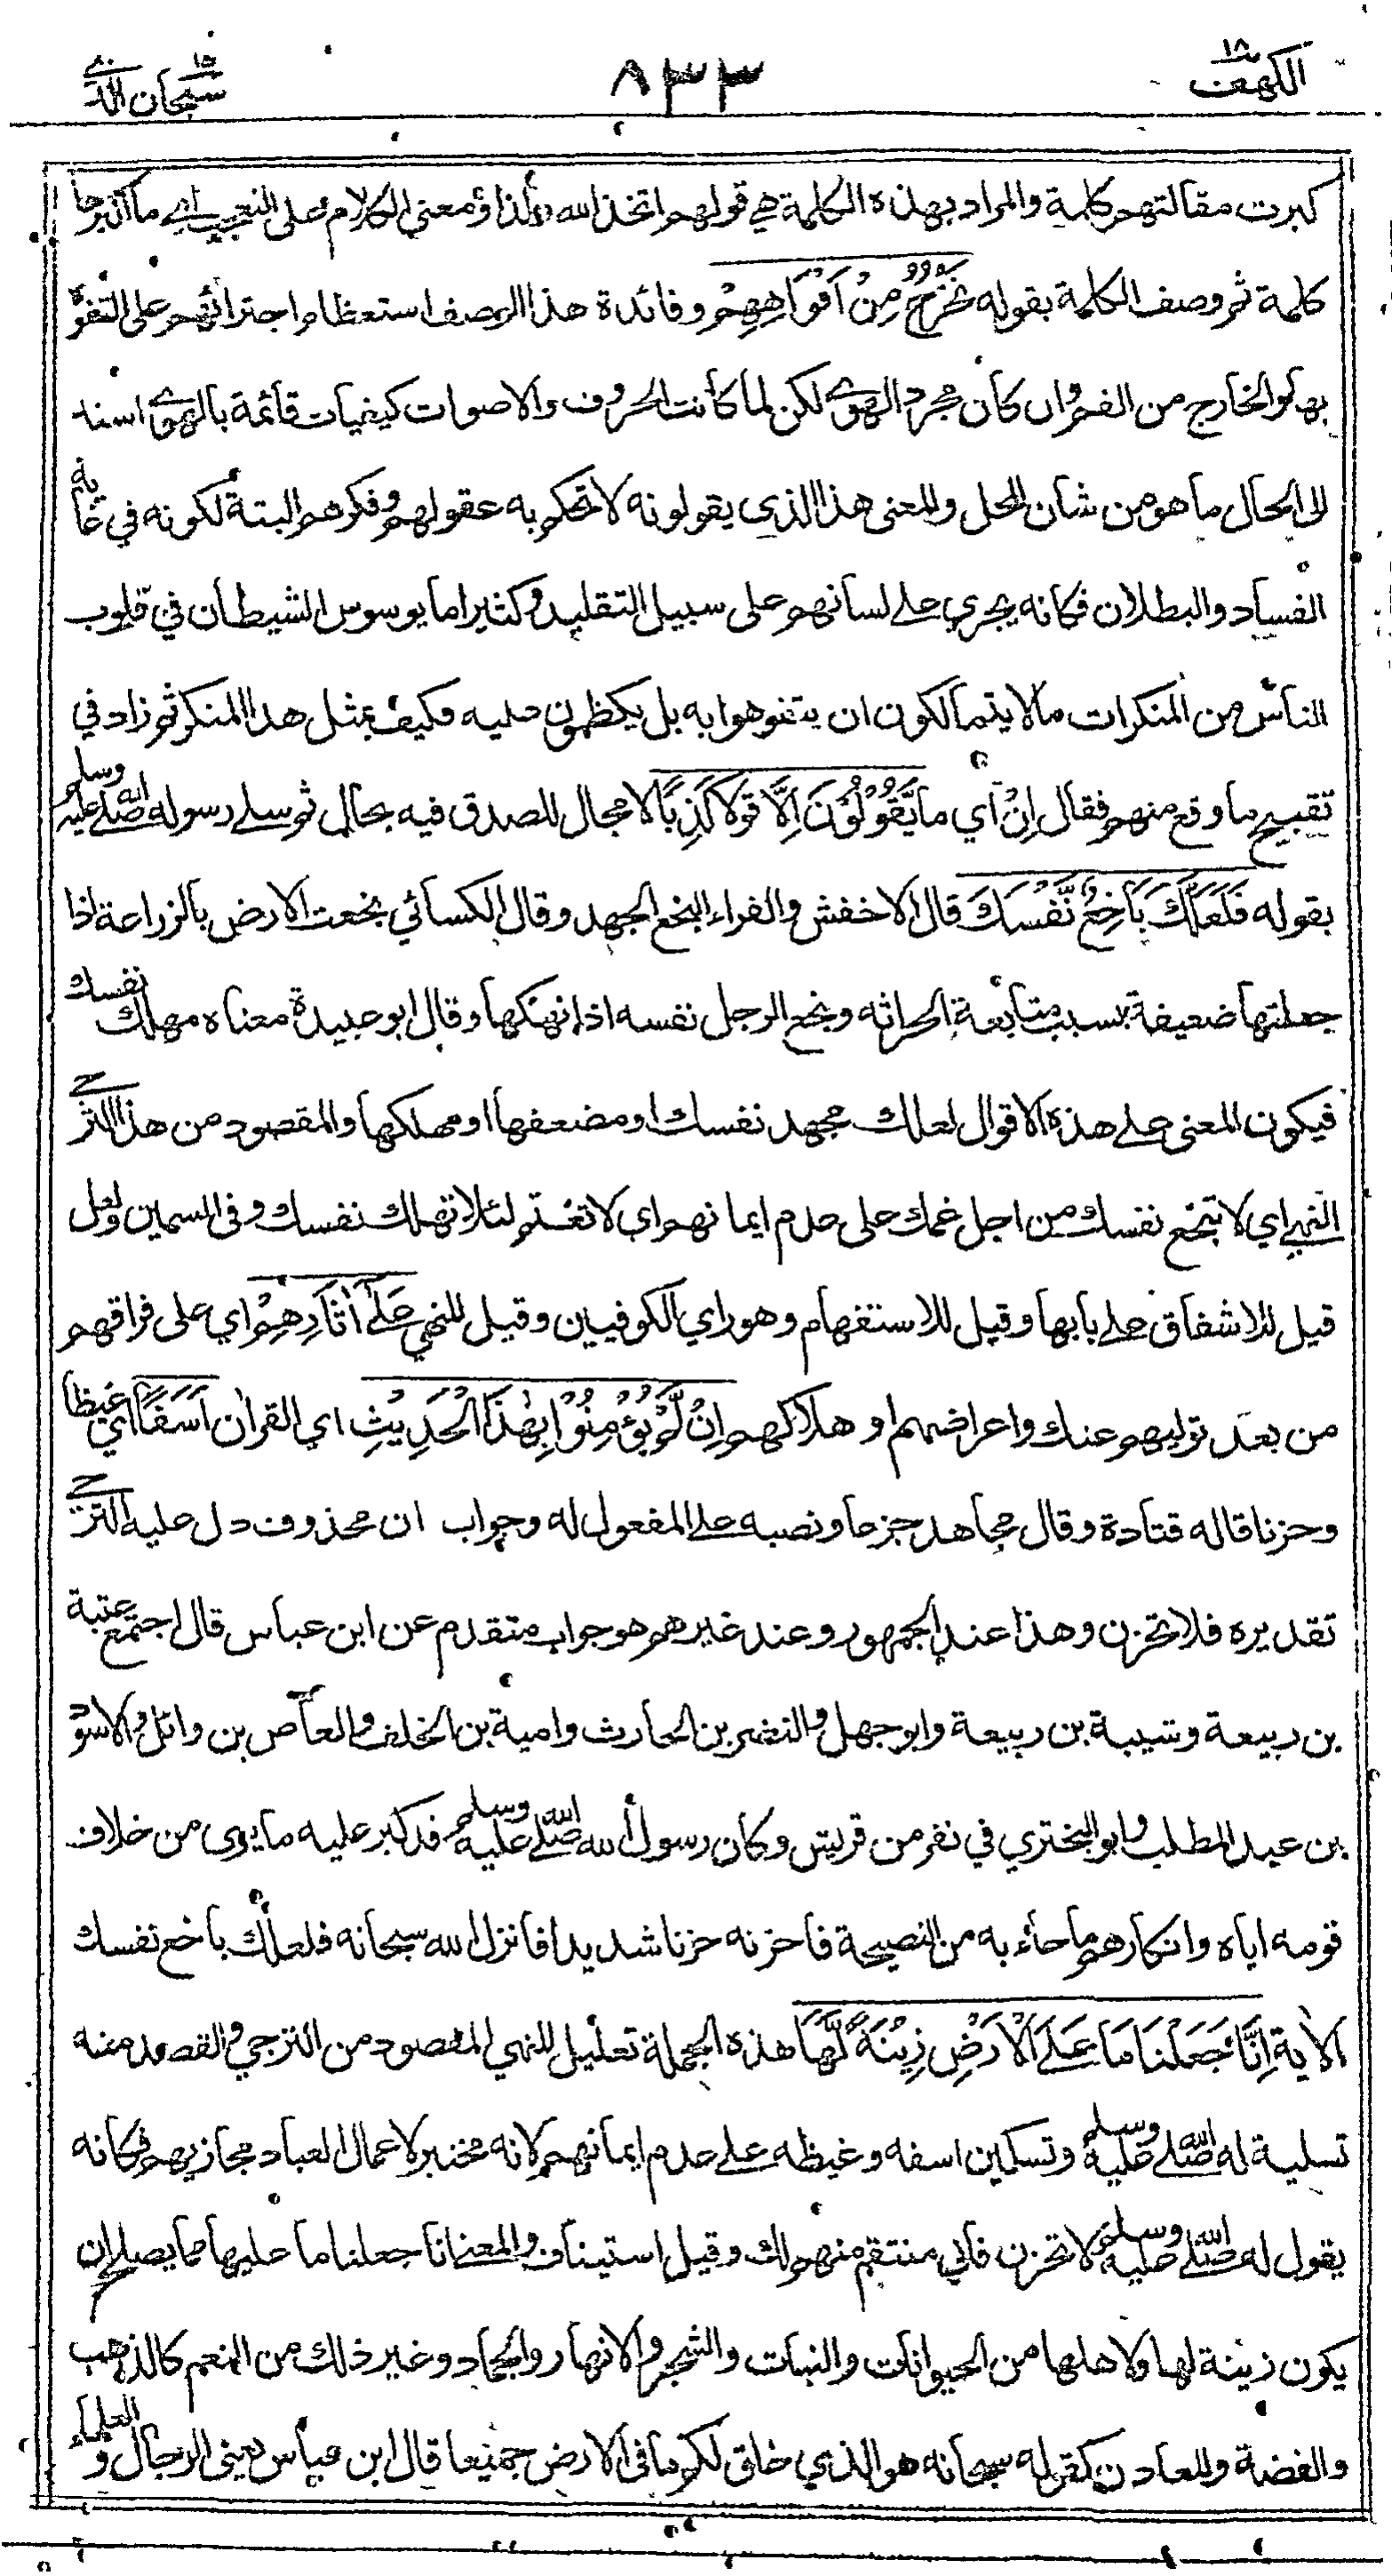 الكهف ١٨
٨٣٣
سبحان الذي ١٥
كبرت مقالتهم كلمة والمراد بهذه الكلمة هي قولهم اتخذ الله ولدا ومعنى الكلام على التعجب اي ما اكبرها
كلمة ثم وصف الكلمة بقوله تَخْرُجُ مِنْ اَفْوَاهِهِمْ وفائدة هذا الوصف استعظام اجترائهم على التفوّه
بها والخارج من الفم وان كان مجرد الهوى لكن لما كانت الحروف والاصوات كيفيات قائمة بالهوى اسند
الى الحال ما هو من شان المحل والمعنى هذا الذي يقولونه لا تحكم به عقولهم وفكرهم البتة لكونه في غاية
الفساد والبطلان فكانه يجري على لسانهم على سبيل التقليد وكثيرا ما يوسوس الشيطان في قلوب
الناس من المنكرات ما لا يتمالكون ان يتفوهوا به بل يكظمون عليه فكيف بمثل هذا المنكر ثم زاد في
تقبيح ما وقع منهم فقال اِنْ اي ما يَّقُوْلُوْنَ اِلَّا قَوْلًا كَذِبًا لا مجال للصدق فيه بحال ثم سلى رسوله صلى الله عليه وسلم
بقوله فَلَعَلَّكَ بَاخِعٌ نَّفْسَكَ قال الاخفش والفراء البخع الجهد وقال الكسائي بخعت الارض بالزراعة اذا
جعلتها ضعيفة بسبب متابعة الحراثه وبخع الرجل نفسه اذا نهكها وقال ابو عبيدة معناه مهلك نفسك
فيكون المعنى على هذه الاقوال لعلك مجهد نفسك او مضعفها او مهلكها والمقصود من هذا الترجي
النهي اي لا تبخع نفسك من اجل غمك على عدم ايمانهم اي لا تغتم لئلا تهلك نفسك وفي السمين ولعل
قيل للاشفاق على بابها وقيل للاستفهام وهو راي الكوفيين وقيل للنهي عَلٰٓى اٰثَارِهِمْ اي على فراقهم
من بعد توليهم عنك واعراضهم او هلاكهم اِنْ لَّمْ يُؤْمِنُوْا بِهٰذَا الْحَدِيْثِ اي القران اَسَفًا اي غيظا
وحزنا قاله قتادة وقال مجاهد جزعا ونصبه على المفعول له وجواب ان محذوف دل عليه الترجي
تقديره فلا تحزن وهذا عند الجمهور وعند غيرهم هو جواب متقدم عن ابن عباس قال اجتمع عتبة
بن ربيعة وشيبة بن ربيعة وابو جهل والنضر بن الحارث وامية بن الخلف والعاص بن وائل والاسود
بن عبد المطلب وابو البختري في نفر من قريش وكان رسول الله صلى الله عليه وسلم قد كبر عليه ما يرى من خلاف
قومه اياه وانكارهم ما جاء به من النصيحة فاحزنه حزنا شديدا فانزل الله سبحانه فلعلك باخع نفسك
الاية اِنَّا جَعَلْنَا مَا عَلَى الْاَرْضِ زِيْنَةً لَّهَا هذه الجملة تعليل للنهي المقصود من الترجي والقصد منه
تسلية له صلى الله عليه وسلم وتسكين اسفه وغيظه على عدم ايمانهم لانه مختبر لاعمال العباد مجازيهم فكانه
يقول له صلى الله عليه وسلم لا تحزن فاني منتقم منهم لك وقيل استيناف والمعنى انا جعلنا ما عليها مما يصلح ان
يكون زينة لها ولاهلها من الحيوانات والنبات والشجر والانهار والجماد وغير ذلك من النعم كالذهب
والفضة والمعادن كقوله سبحانه هو الذي خلق لكم ما في الارض جميعا قال ابن عباس يعني الرجال والعلماء